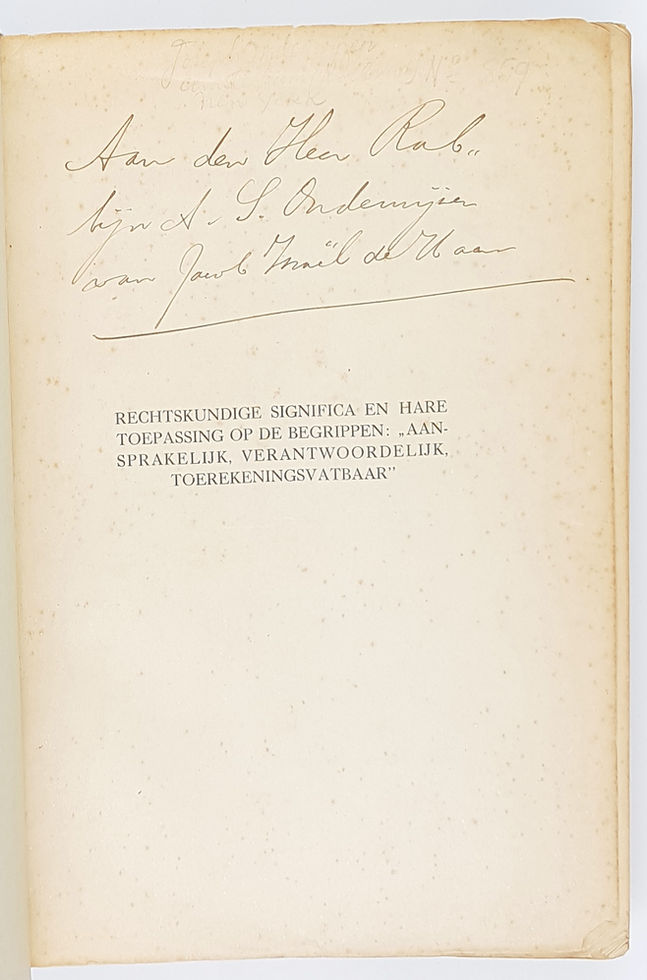 New York No 859
Aan den Heer Rab„
bijn A. S. Onderwijzer
van Jacob Israël de Haan
RECHTSKUNDIGE SIGNIFICA EN HARE
TOEPASSING OP DE BEGRIPPEN: „AAN-
SPRAKELIJK, VERANTWOORDELIJK,
TOEREKENINGSVATBAAR”